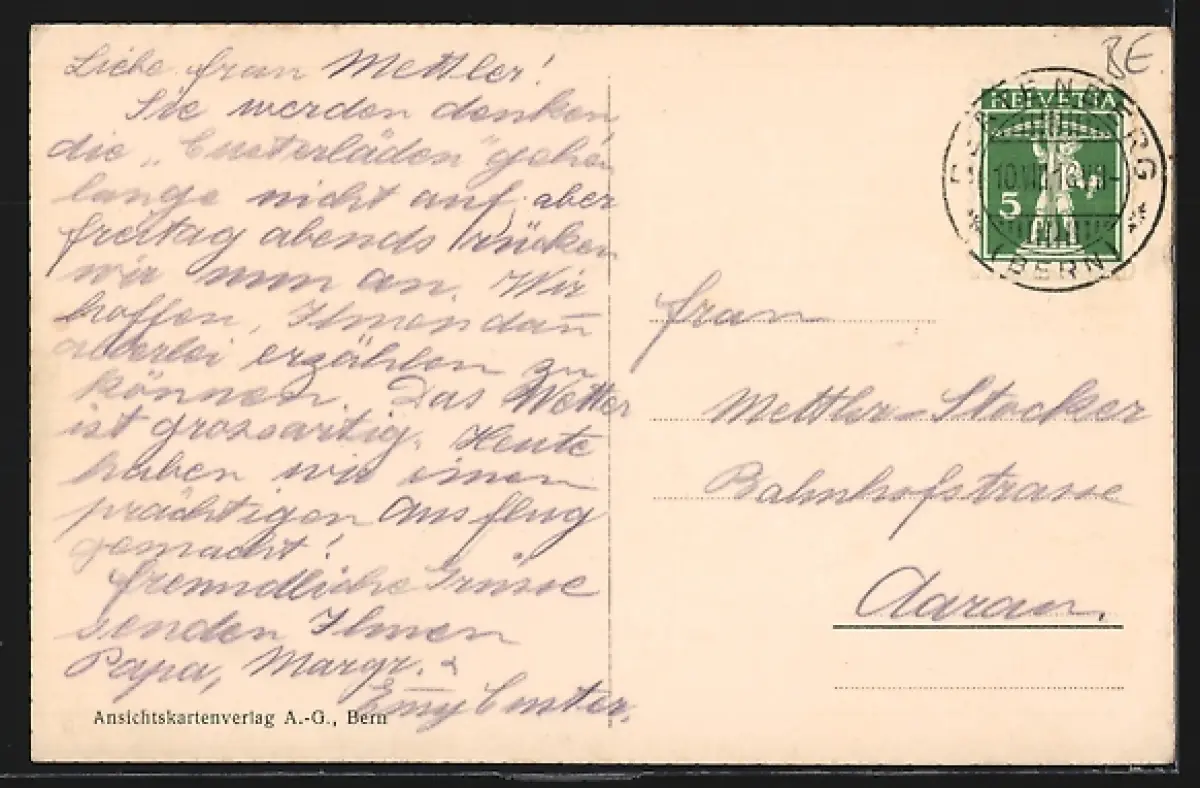 Liebe Frau Mettler!
Sie werden denken
die „Custerläden" gehen
lange nicht auf, aber
freitag abends rücken
wir nun an. Wir
hoffen, Ihnen dann
allerlei erzählen zu
können. Das Wetter
ist grossartig. Heute
haben wir einen
prächtigen Ausflug
gemacht!
Freundliche Grüsse
senden Ihnen
Papa, Margr. &
Emmy Custer.
Ansichtskartenverlag A.-G., Bern
BE.
HELVETIA
5
(BERN)
Frau
Mettler-Stocker
Bahnhofstrasse
Aarau.